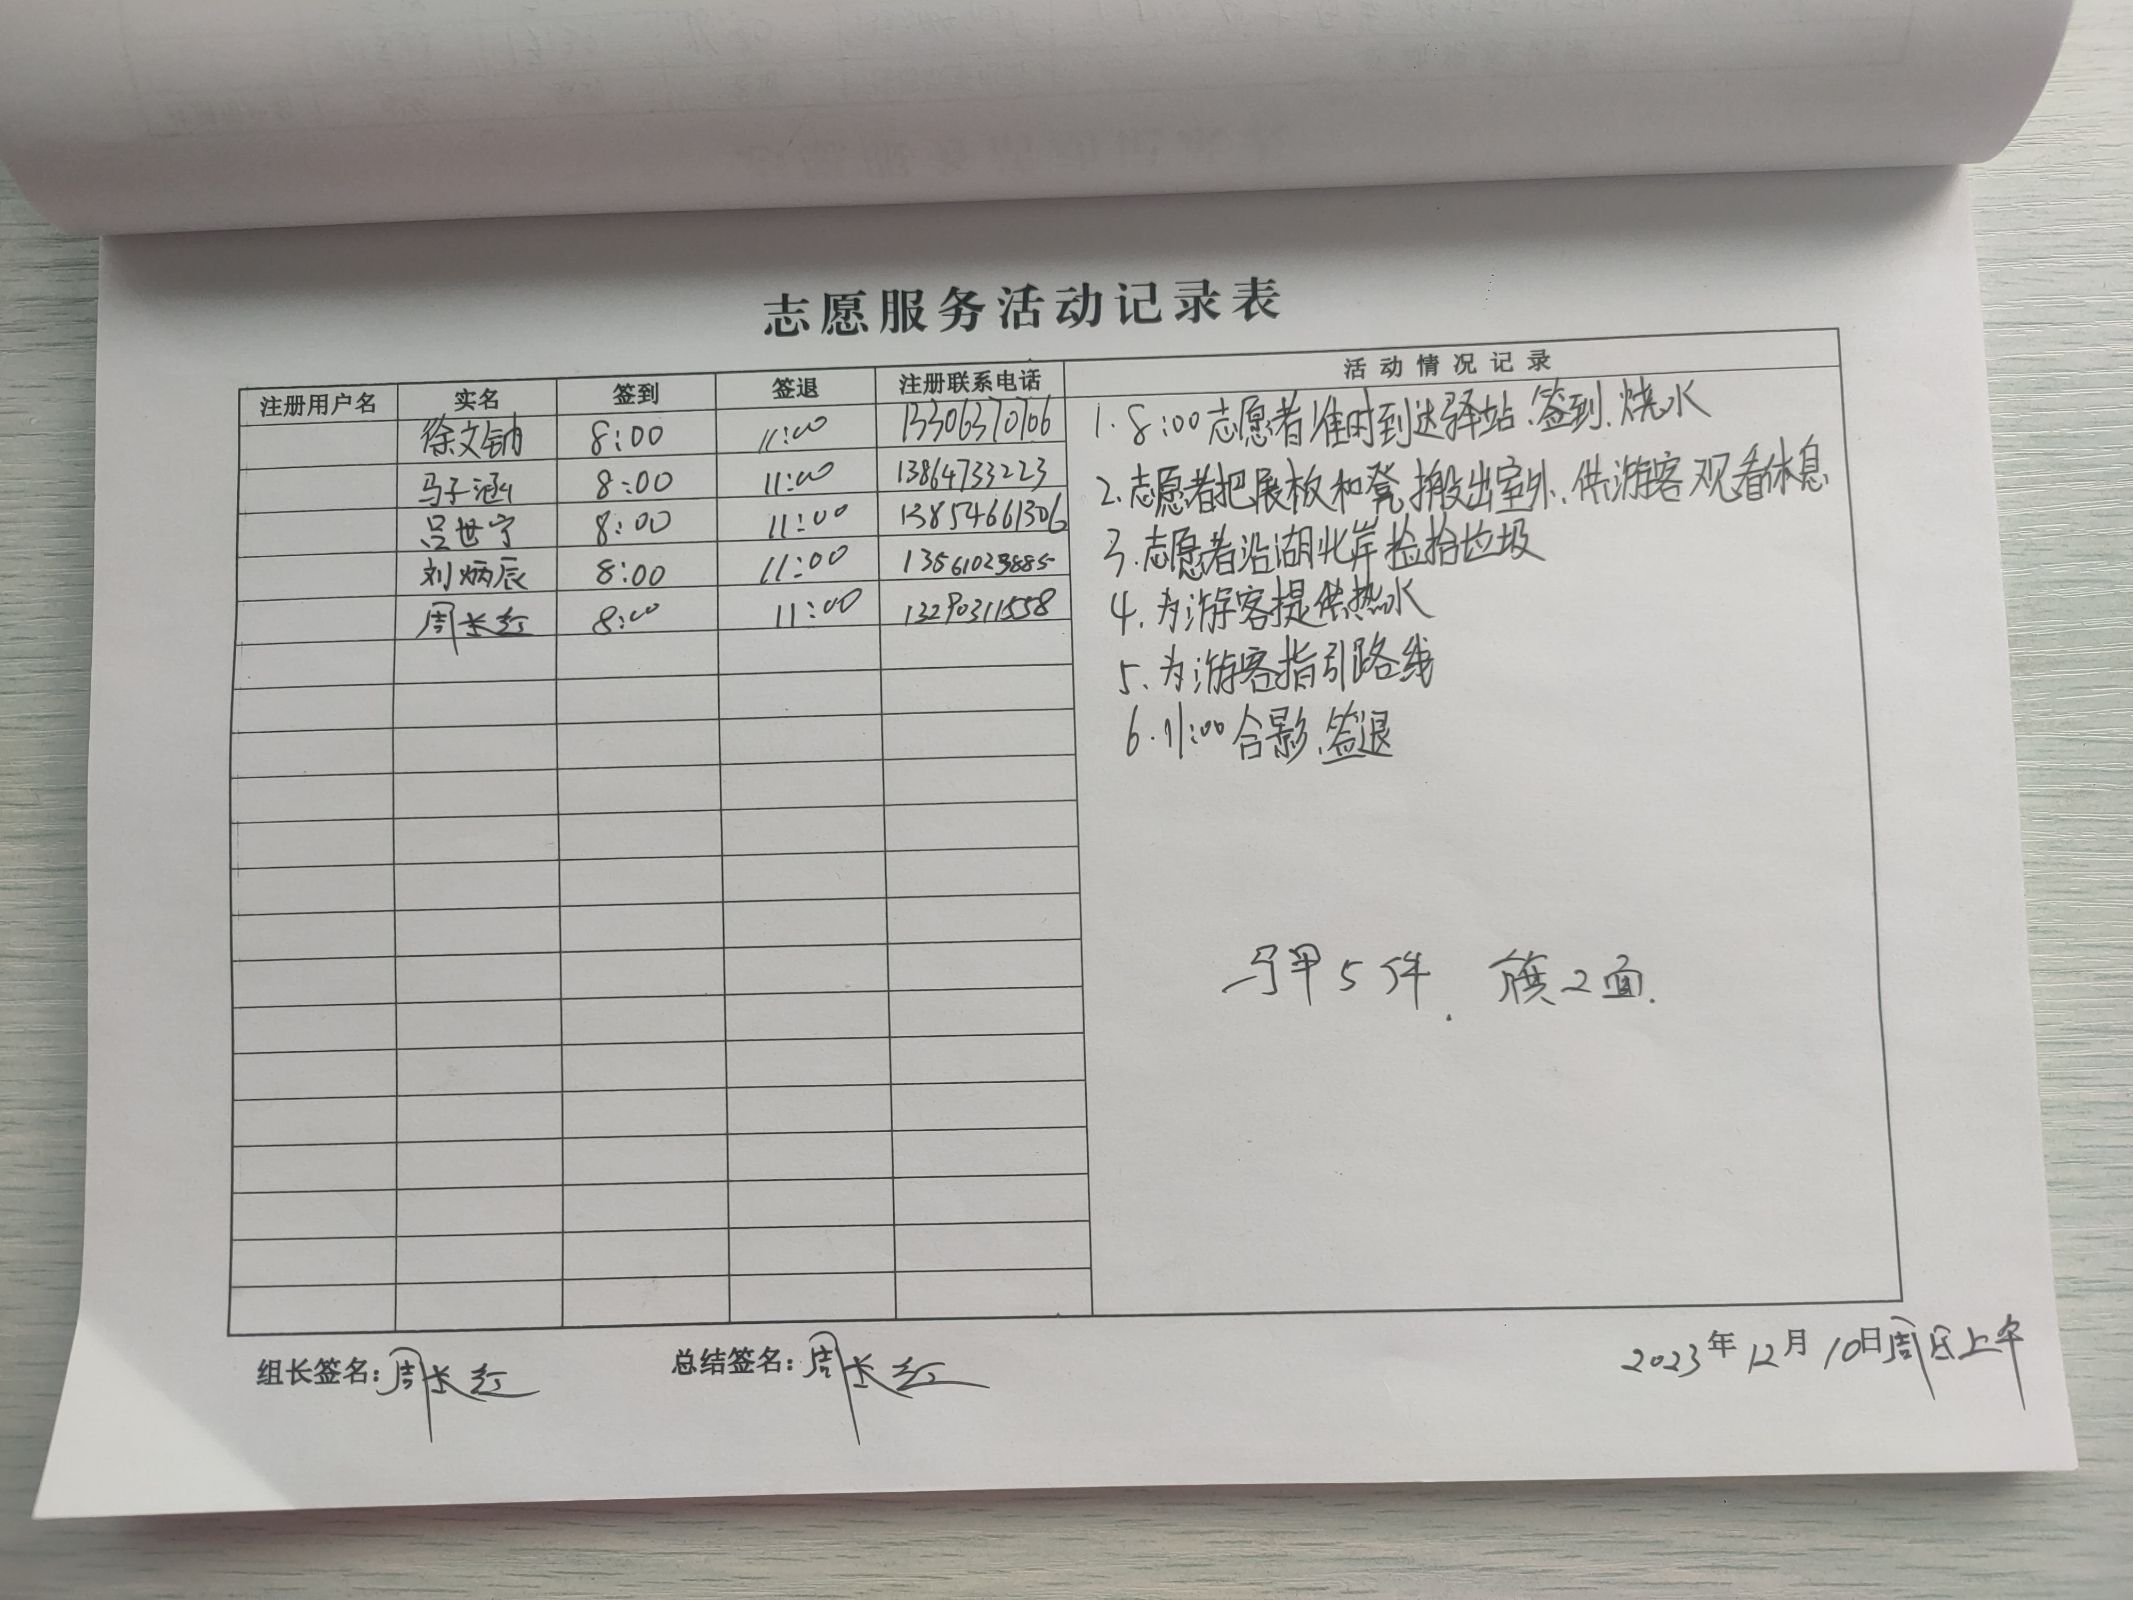 志愿服务活动记录表
注册用户名 实名 签到 签退 注册联系电话 活动情况记录
徐文钠 8:00 11:00 13306370706
马子涵 8:00 11:00 13864733223
吕世宁 8:00 11:00 13854661306
刘炳辰 8:00 11:00 13561023885
周长红 8:00 11:00 13290311558
1. 8:00志愿者准时到达驿站、签到、烧水
2.志愿者把展板和凳搬出室外、供游客观看休息
3.志愿者沿湖北岸捡拾垃圾
4.为游客提供热水
5、为游客指引路线
6.11:00合影、签退
马甲5件. 旗2面.
组长签名:周长红 总结签名:周长红 2023年12月10日周日上午